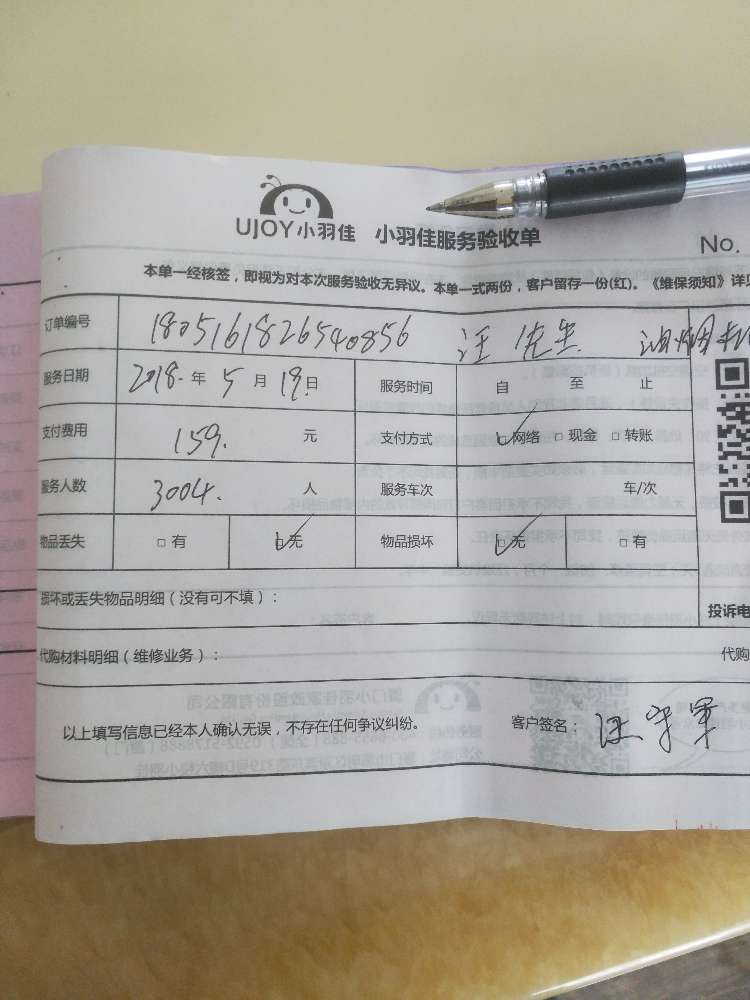 UJOY小羽佳 小羽佳服务验收单
No.
本单一经核签，即视为对本次服务验收无异议。本单一式两份，客户留存一份(红)。《维保须知》详见
订单编号 1805161826540856 汪先生 油烟机
服务日期 2018.年5月19日 服务时间 自 至 止
支付费用 159. 元 支付方式 ☑网络 □现金 □转账
服务人数 3004. 人 服务车次 车/次
物品丢失 □有 ☑无 物品损坏 ☑无 □有
损坏或丢失物品明细（没有可不填）：
投诉电
代购材料明细（维修业务）：
代购
以上填写信息已经本人确认无误，不存在任何争议纠纷。 客户签名：汪守军